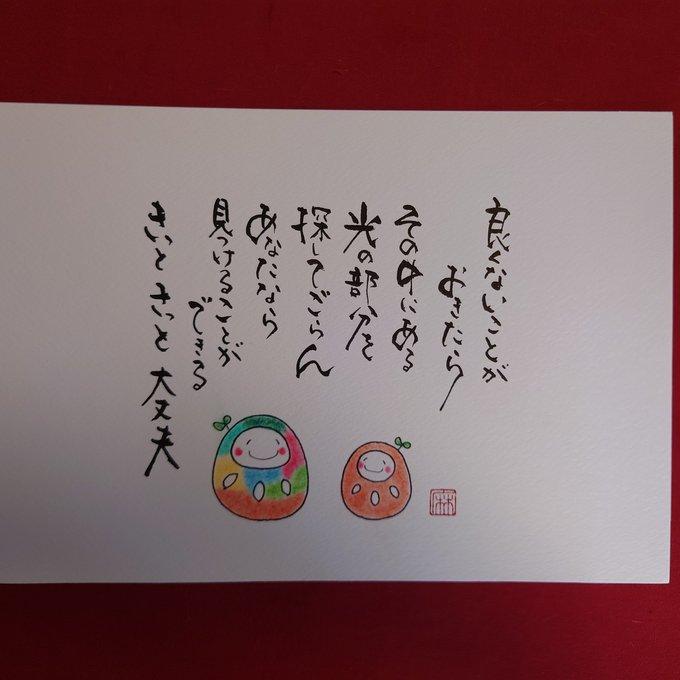 良くないことが
おきたら
その中にある
光の部分を
探してごらん
あなたなら
見つけることが
できる
きっと きっと 大丈夫